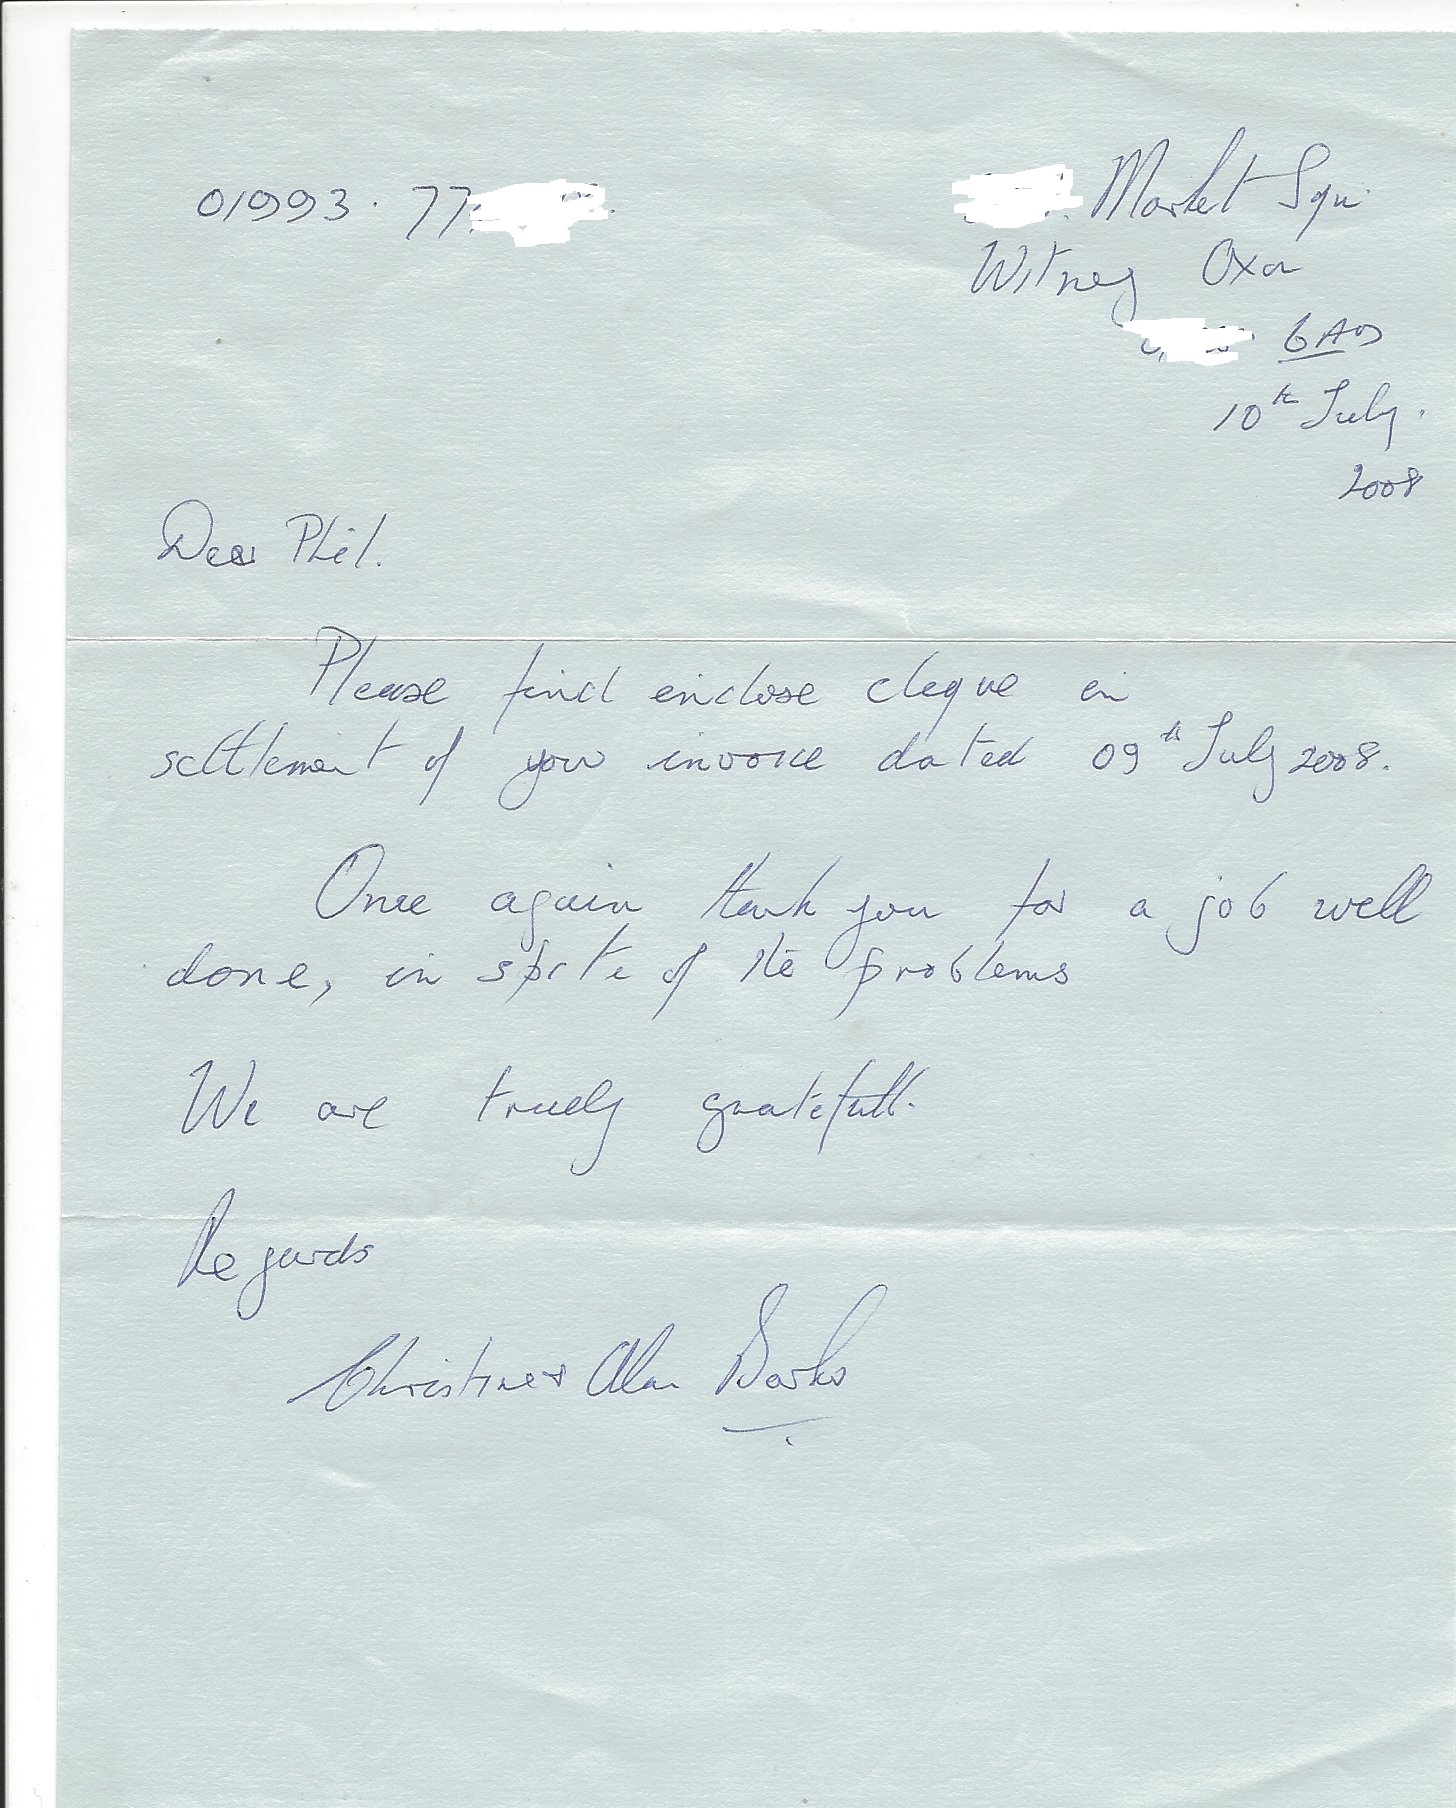 01993. 77
Market Squ
Witney Oxon
6AD
10th July.
2008
Dear Phil.
Please find enclose cheque in
settlement of your invoice dated 09th July 2008.
Once again thank you for a job well
done, in spite of the problems
We are truely gratefull.
Regards
Christine & Alan